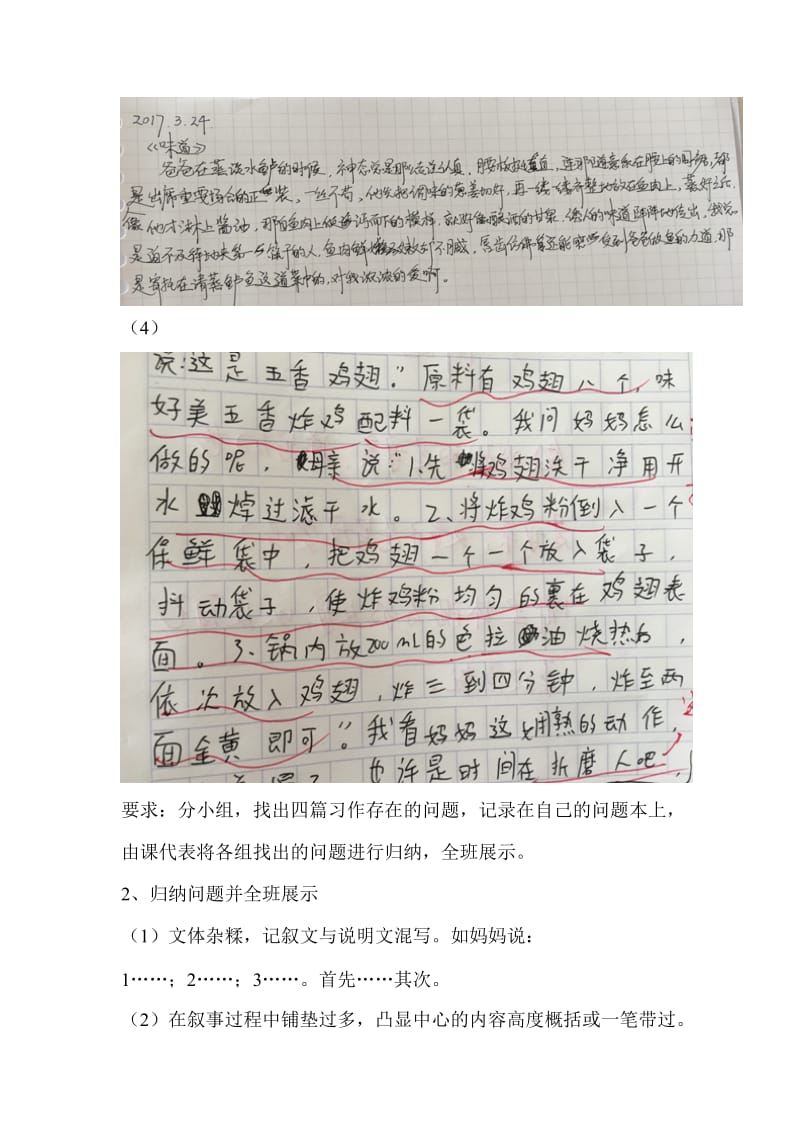 2017.3.24.
《味道》
爸爸在蒸淡水鲈的时候，神态总是那么专注认真，腰板挺直，连那随意系在腰上的围裙，都
是出席重要场合的正装，一丝不苟，他先把调味的葱姜切好，再一缕缕齐整地放在鱼肉上，蒸好之后，
他才淋上酱油，那 鱼肉上 的模样，就好像酿酒的甘泉，的味道阵阵地传出，我总
是迫不及待地夹第一筷子的人，鱼肉鲜 不腻，唇齿 还能 受到爸爸做鱼的力道，那
是寄托在清蒸鲈鱼这道菜中的，对我浓浓的爱啊。
（4）
说：这是五香鸡翅。”原料有鸡翅八个，味
好美五香炸鸡配料一袋。我问妈妈怎么
做的呢，母亲说：“1、先将鸡翅洗干净用开
水焯过滤干水。2、将炸鸡粉倒入一个
保鲜袋中，把鸡翅一个一个放入袋子，
抖动袋子，使炸鸡粉均匀的裹在鸡翅表
面。3、锅内放200mL的色拉油烧热后，
依次放入鸡翅，炸三到四分钟，炸至两
面金黄即可”。我看妈妈这娴熟的动作，
也许是时间在折磨人吧，
要求：分小组，找出四篇习作存在的问题，记录在自己的问题本上，
由课代表将各组找出的问题进行归纳，全班展示。
2、归纳问题并全班展示
（1）文体杂糅，记叙文与说明文混写。如妈妈说：
1……；2……；3……。首先……其次。
（2）在叙事过程中铺垫过多，凸显中心的内容高度概括或一笔带过。